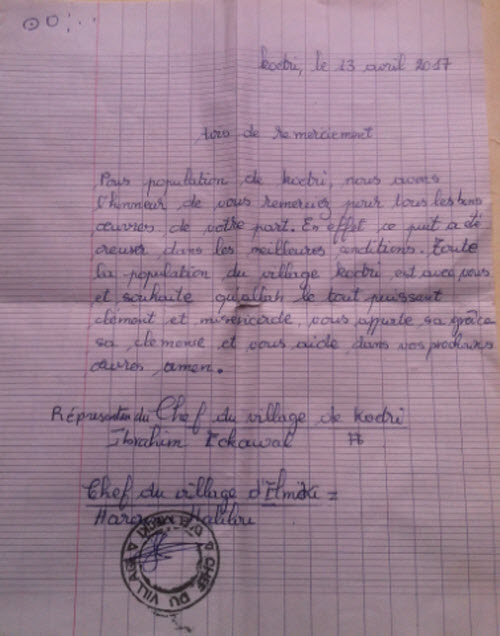 Kodri, le 13 avril 2017
de remerciement
Pous population de Kodri, nous avons
l'honneur de vous remerciez pour tous les bons
œuvres de votre part. En effet ce puit a été
creuser dans les meilleures conditions. Toute
la population du village Kodri est avec vous
et souhaite qu'allah le tout puissant
clément et misericorde, vous apporte sa grâce
sa clemence et vous aide dans vos prochaines
œuvres amen.
Réprésentan du Chef du village de Kodri
Ibrahim Ekawal
Chef du village d'Elmiki =
CHEF DU VILLAGE D'ELMEKI